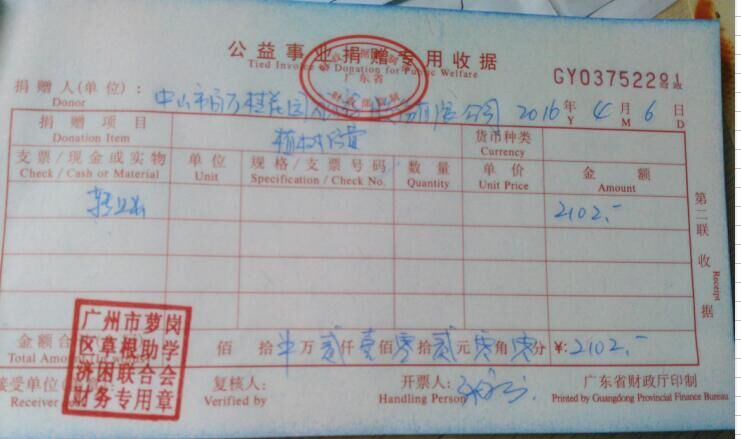 公益事业捐赠专用收据
Tied Invoice Donation for Public Welfare
广东省
GY03752291
捐赠人(单位): 中山市 公司 2016年 4月 6日
Donor Y M D
捐赠项目 货币种类
Donation Item Currency
支票/现金或实物 单位 规格/支票号码 数量 单价 金额
Check / Cash or Material Unit Specification / Check No. Quantity Unit Price Amount
2102.-
第二联 收据
Receipt
广州市萝岗
区草根助学
济困联合会
财务专用章
金额合 佰 拾 万 贰仟 壹佰 零拾 贰元 零角 零分 ¥:2102.-
Total Amount (In w
接受单位 复核人: 开票人: 广东省财政厅印制
Receiver Verified by Handling Person Printed by Guangdong Provincial Finance Bureau